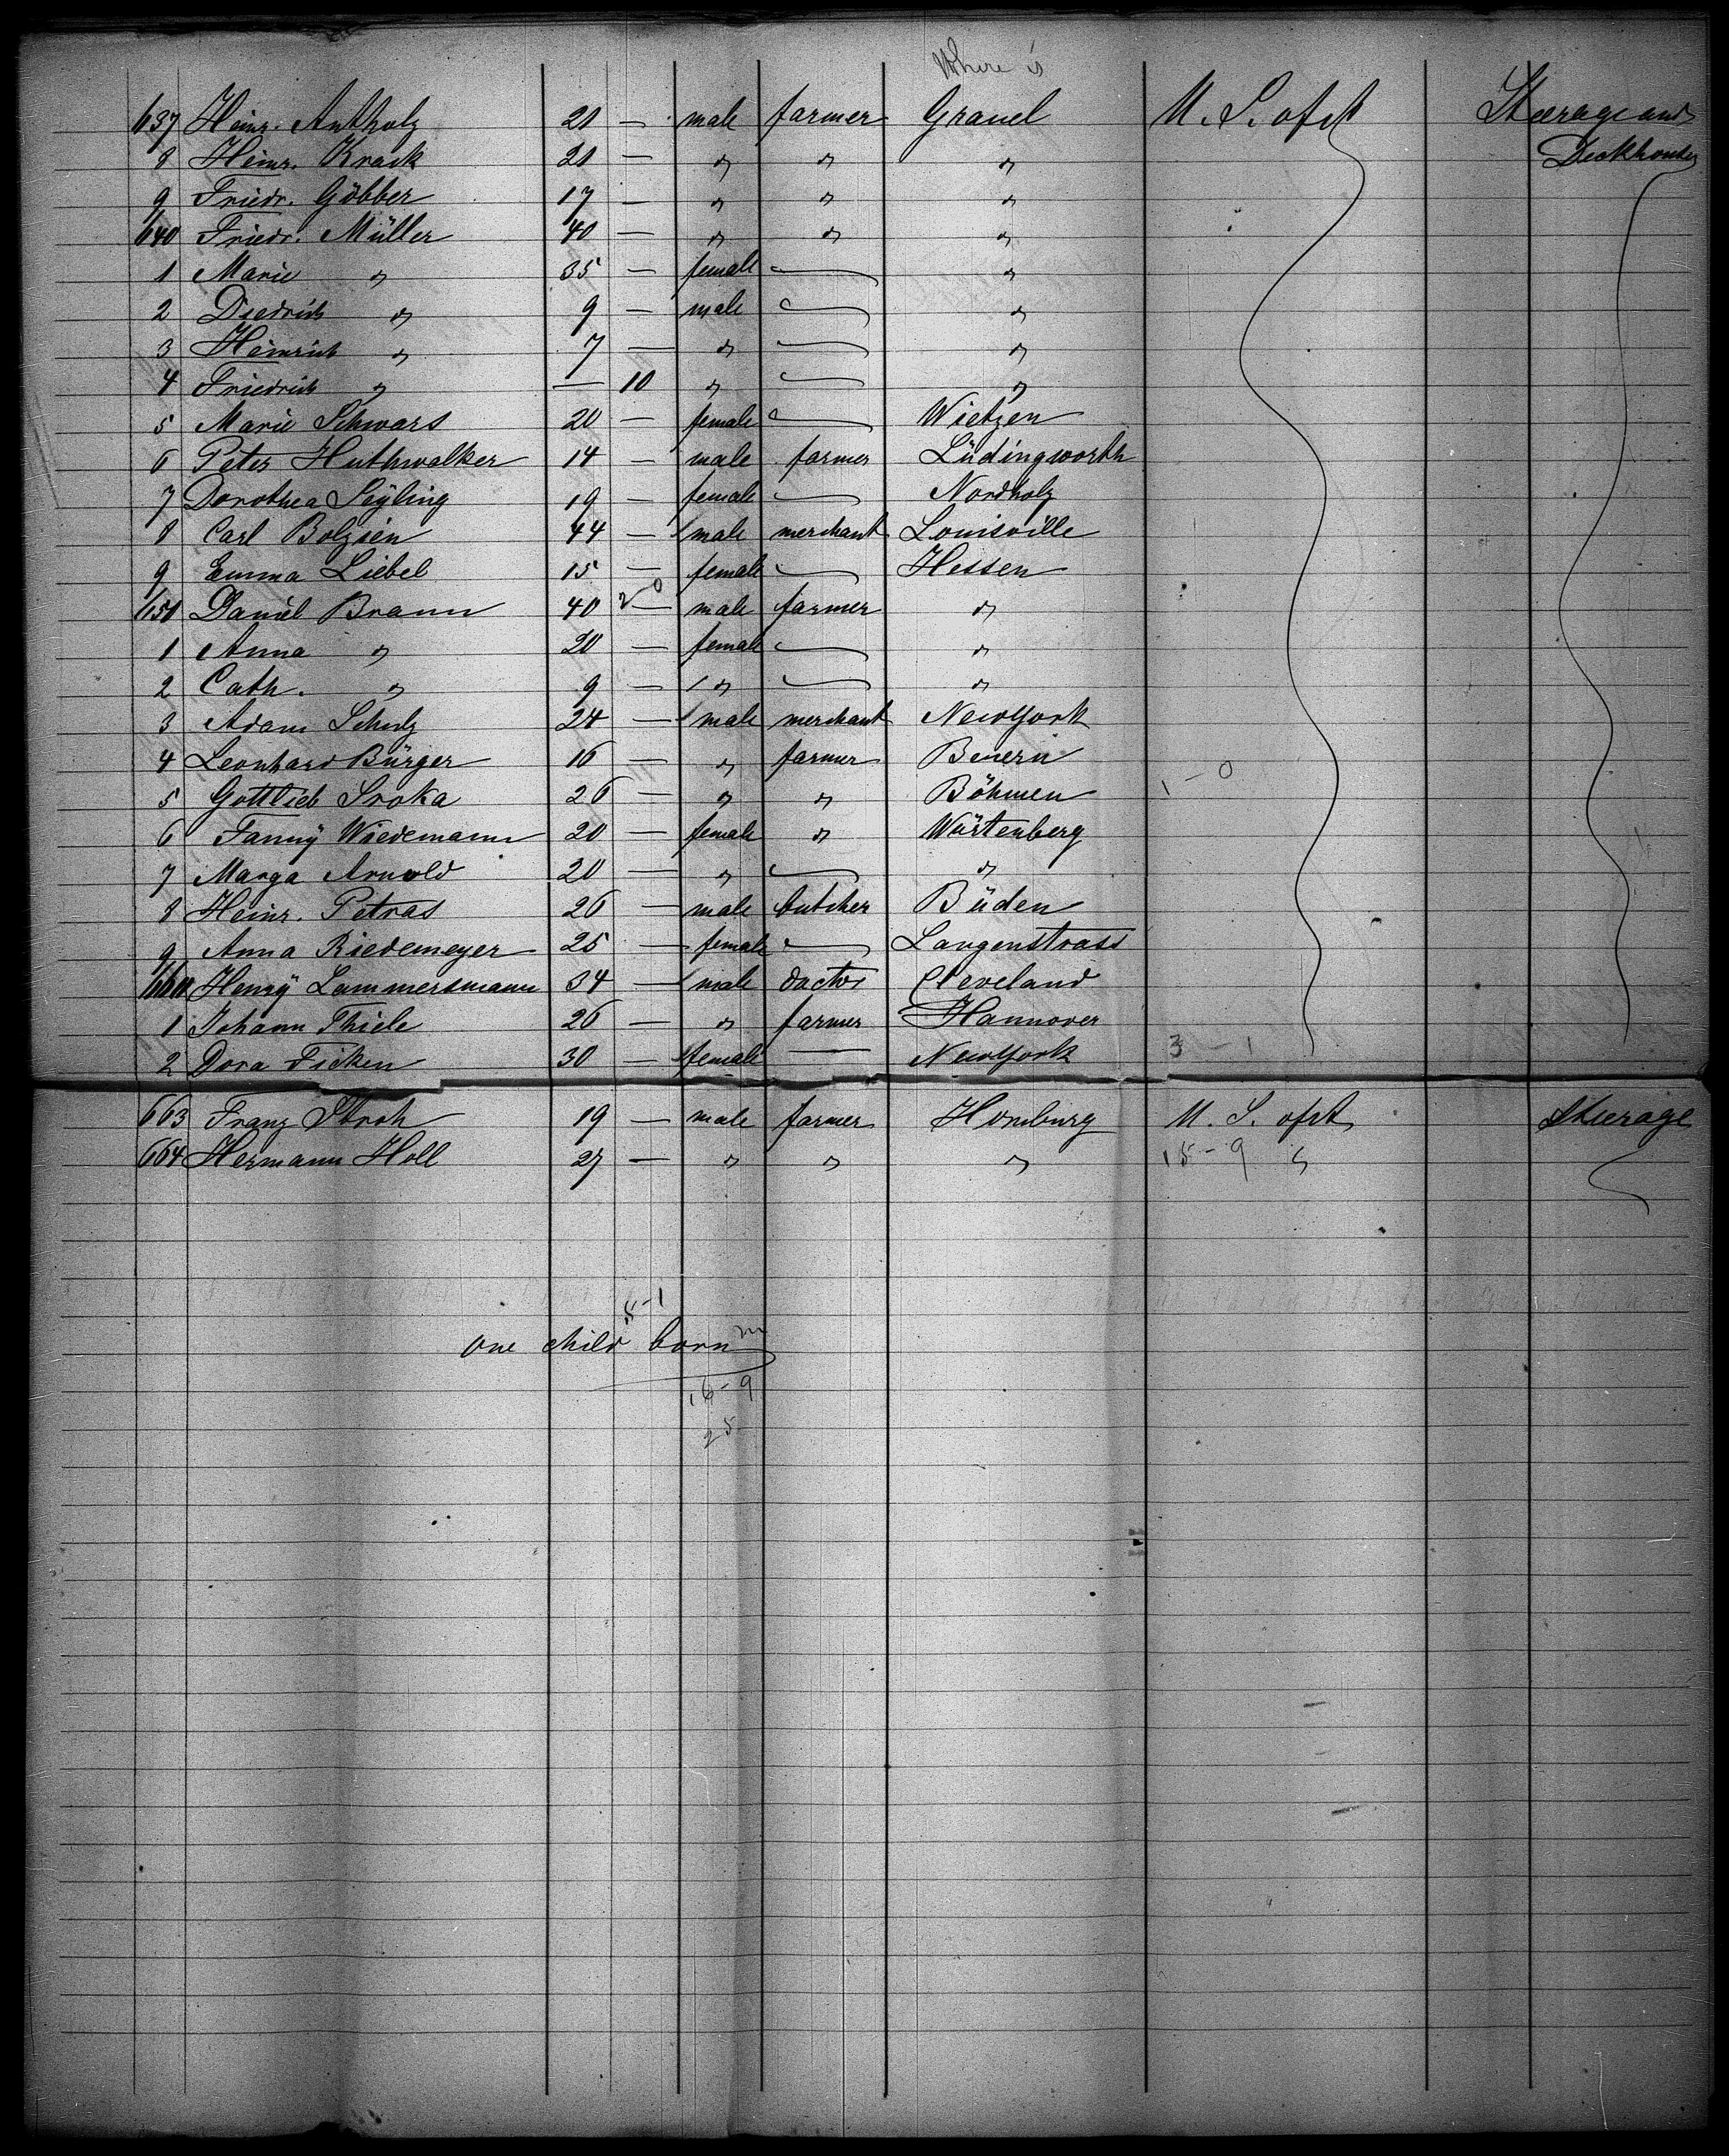 Where is
637 Heinr. Antholz 21 — male farmer Grauel U. S. of A Steerage and
8 Heinr. Krack 21 — " " " Deckhouse
9 Friedr. Göbber 17 — " " "
640 Friedr. Müller 40 — " " "
1 Marie " 35 — female — "
2 Diedrich " 9 — male — "
3 Heinrich " 7 — " — "
4 Friedrich " — 10 " — "
5 Marie Schwars 20 — female — Wietzen
6 Peter Huthwalker 14 — male farmer Lüdingworth
7 Dorothea Seyling 19 — female — Nordholz
8 Carl Bolzien 44 — male merchant Louisville
9 Emma Liebel 15 — female — Hessen
650 Daniel Braun 40 — 2 0 male farmer "
1 Anna " 20 — female — "
2 Cath. " 9 — " — "
3 Adam Schulz 24 — male merchant NewYork
4 Leonhard Bürger 16 — " farmer Bevern
5 Gottlieb Sroka 26 — " " Böhmen 1 - 0
6 Fanny Wiedemann 20 — female " Würtenberg
7 Marga Arnold 20 — " — "
8 Heinr. Petras 26 — male butcher Büden
9 Anna Riedemeyer 25 — female — Langenstrass
660 Henry Lammersmann 34 — male doctor Cleveland
1 Johann Thiele 26 — " farmer Hannover
2 Dora Ficken 30 — female — NewYork 3 - 1
663 Franz Stroh 19 — male farmer Homburg U. S. of A Steerage
664 Hermann Holl 27 — " " " 15 - 9 "
5-1
one child born m
16 - 9
25